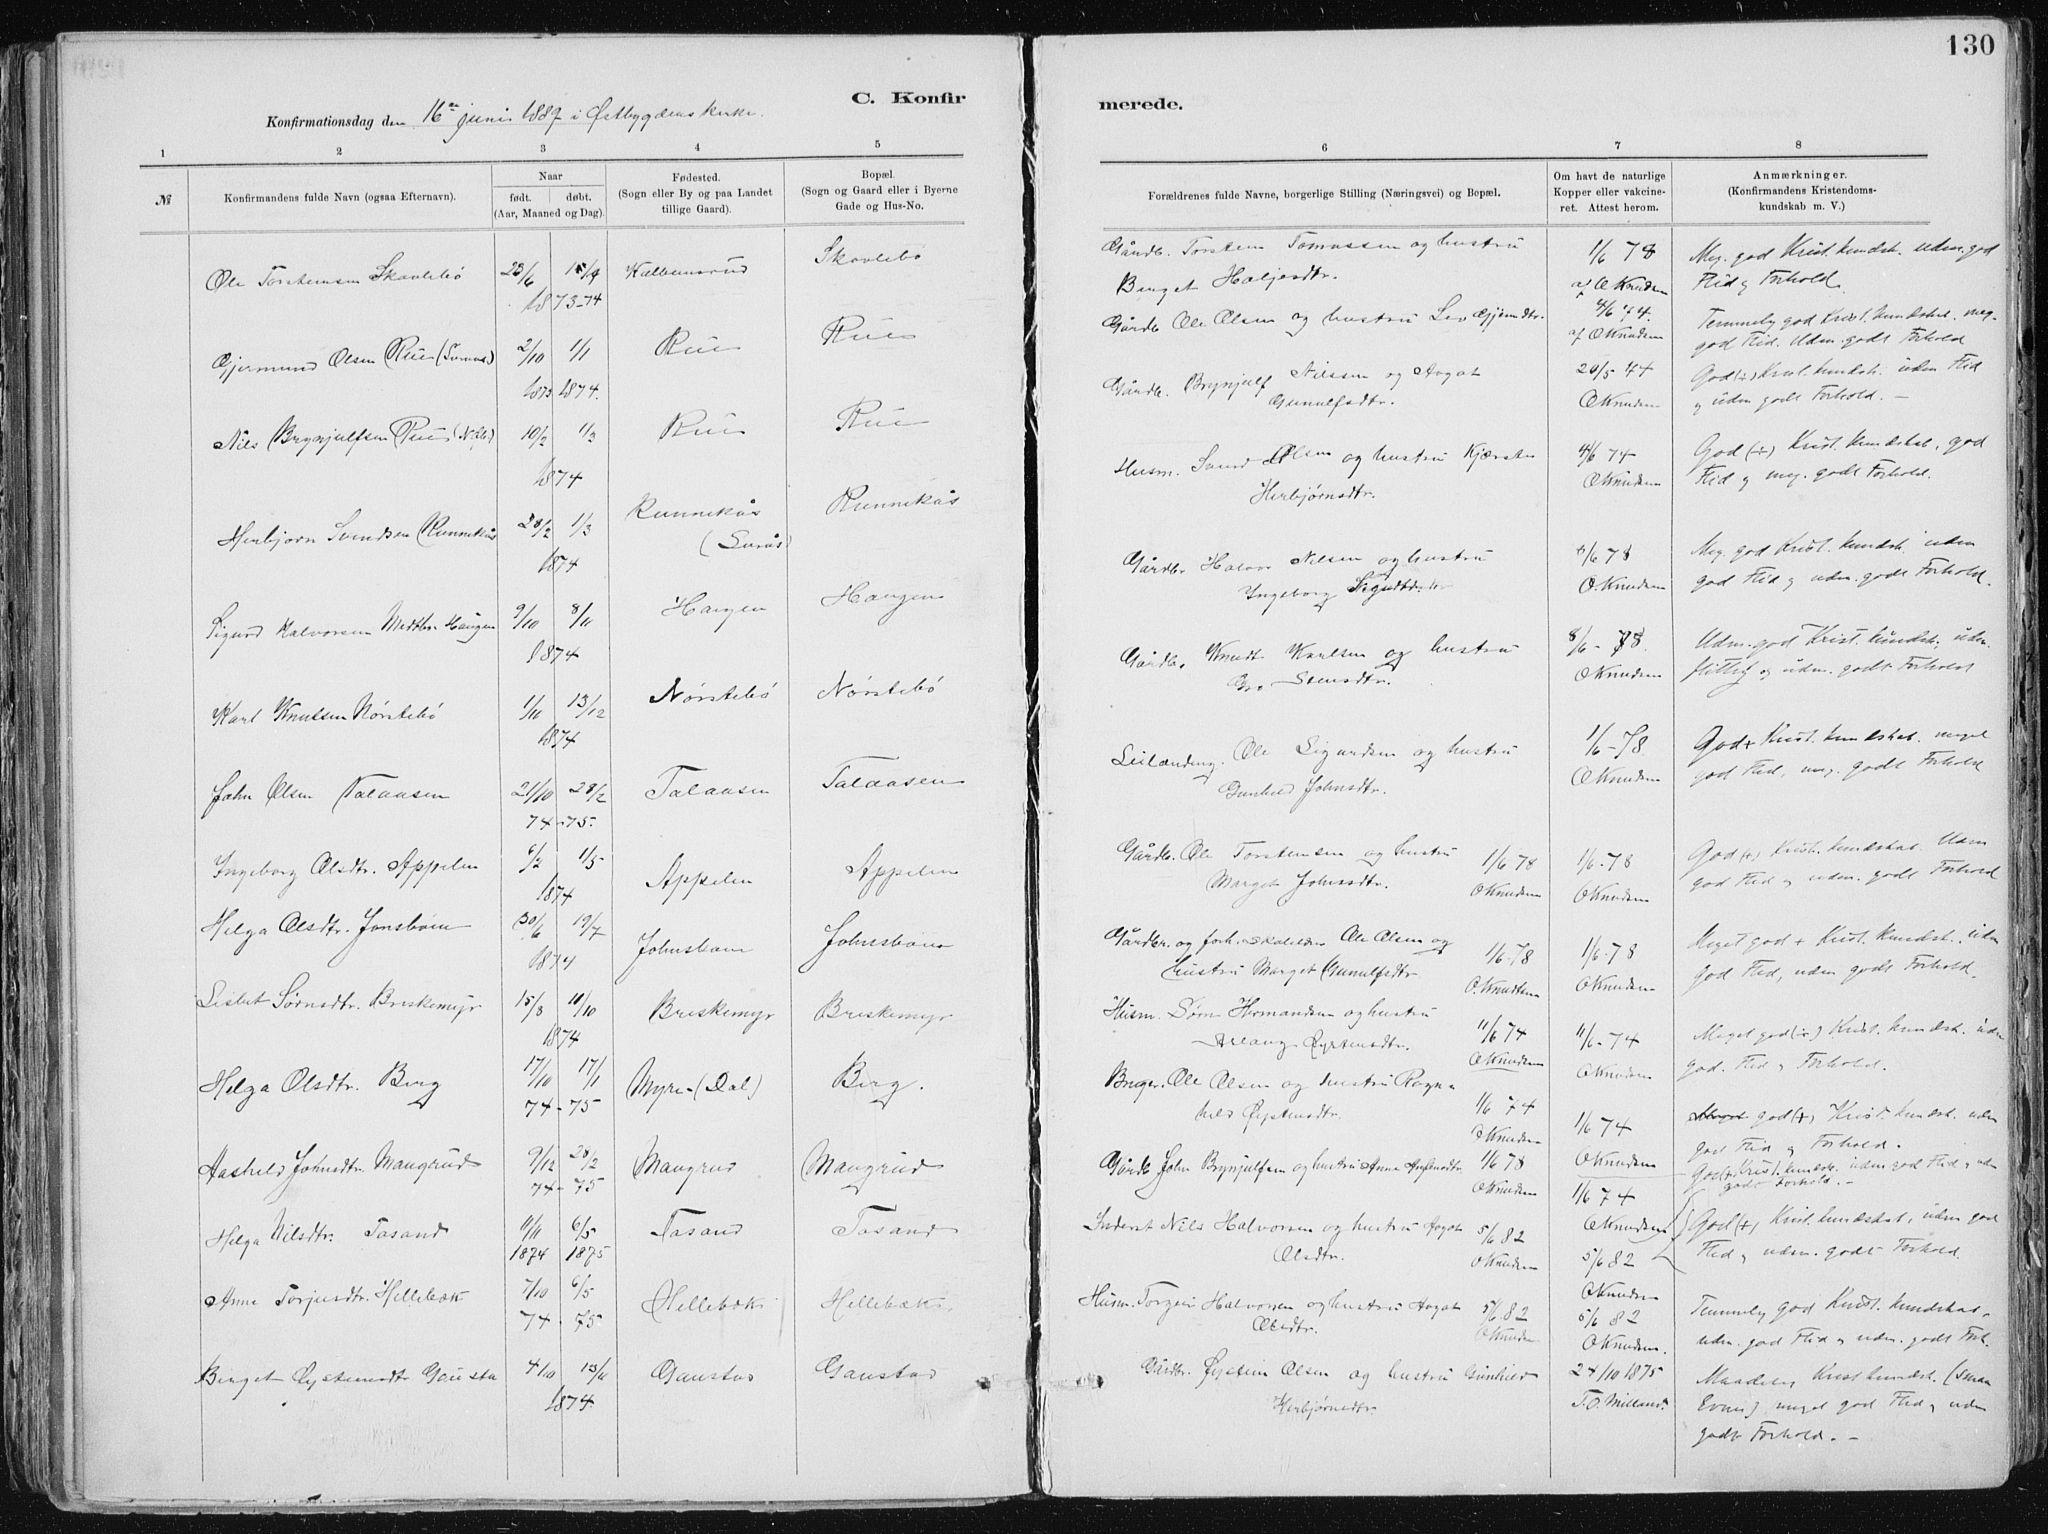 130
C. Konfir
merede.
Konfirmationsdag den 16de juni 1889 i Østbygdens kirke.
1 2 3 4 5 6 7 8
№
Konfirmandens fulde Navn (ogsaa Efternavn).
Naar
født. døbt.
(Aar, Maaned og Dag).
Fødested.
(Sogn eller By og paa Landet
tillige Gaard).
Bopæl.
(Sogn og Gaard eller i Byerne
Gade og Hus-No.
Forældrenes fulde Navne, borgerlige Stilling (Næringsvei) og Bopæl.
Om havt de naturlige
Kopper eller vakcine-
ret. Attest herom.
Anmærkninger.
(Konfirmandens Kristendoms-
kundskab m. V.)
Ole Torstensen Skavlebø 23/6 15/4 Kalbensrud Skavlebø
1873-74
Gårdbr. Torsten Tomassen og hustru 1/6 78 Meg. god Krist. kundsk. udm. god
Birget Haljesdtr. af OKnudsen Flid og Forhold.
Gjermund Olsen Rue (Svaas) 2/10 1/1 Rue Rue
1873 1874.
Gårdb. Ole Olsen og hustru Liv Gjermdtr. 4/6 74. Temmelig god Krist. kundskab. meg.
af OKnudsen god Flid. Udm. godt Forhold
Nils Brynjulfsen Rue 10/2 1/3 Rue Rue
1874
Gårdb. Brynjulf Nilsen og Aagot 20/5 44 God (+) Krist. kundsk. udm Flid
Gunulfsdtr. OKnudsen og udm godt Forhold. —
Herbjørn Svendsen Runnikås 28/2 1/3 Runnikås Runnikås
1874 (Svaas)
Husm. Svend Olsen og hustru Kjærsten 4/6 74 God (+) Krist. kundskab, god
Herbjørnsdtr. OKnudsen Flid og meg. godt Forhold.
Sigurd Halvorsen Midtbø Haugen 9/10 8/11 Haugen Haugen
1874
Gårdbr Halvor Nilsen og hustru 1/6 78 Meg. god Krist. kundsk. udm
Ingeborg O. Knudsen god Flid og udm. godt Forhold.
Karl Knutsen Nørstebø 1/10 13/12 Nørstebø Nørstebø
1874
Gårdb. Knudt Karlsen og hustru 8/6 - 78. Udm. god Krist. kundsk., udm.
Gro Stensdtr. OKnudsen flittig og udm. godt Forhold
John Olsen Talaasen 21/10 28/2 Talaasen Talaasen
74-75
Leilænding. Ole Sigurdsen og hustru 1/6-78 God + Krist. kundskab. meget
Gunhild Johnsdtr. OKnudsen god Flid, meg. godt Forhold
Ingeborg Olsdtr. Appelen 6/2 1/5 Appelen Appelen
1874
Gårdb. Ole Torstensen og hustru 1/6 78 1/6-78 God (+) Krist. kundskab. Udm
Marget Johnsdtr. OKnudsen OKnudsen god Flid og udm. godt Forhold
Helga Olsdtr. Jonsbøen 30/6 19/7 Johnsbøen Johnsbøen
1874
Gårdbr. og forh. Ole Olsen og 1/6-78 1/6-78 Meget god + Krist. kundsk., udm
hustru Marget Gunulfsdtr O.Knudsen OKnudsen god Flid, udm godt Forhold.
Lisbet Sørnsdtr. Briskemyr 15/8 10/10 Briskemyr Briskemyr
1874
Husm. Søren Hermandsen og hustru 11/6 74 11/6-74 Meget god (÷) Krist. kundsk. udm
Aslaug Øystensdtr. OKnudsen OKnudsen god. Flid og Forhold.
Helga Olsdtr. Berg 17/10 17/1 Myre-(Dal) Berg.
74-75
Ole Olsen og hustru Ragn-
hild Øystensdtr. 1/6 74 1/6 74 god (+) Krist. kundsk. udm
OKnudsen OKnudsen god Flid og Forhold.
Aashild Johnsdtr. Maugrud 9/12 28/2 Maugrud Maugrud
74-75
Gårdb John Brynjulfsen og hustru Anne 1/6 78 1/6 74 God (+) Krist. kundsk. udm god Flid og udm
OKnudsen OKnudsen godt Forhold. —
Helga Nilsdtr. Tasand 11/11 6/5 Tasand Tasand
1874 1875
Inderst Nils Halvorsen og hustru Aagot 5/6 82 5/6 82 God (+) Krist. kundskab, udm god
Olsdtr. OKnudsen OKnudsen Flid og udm. godt Forhold
Anne Torjusdtr. Hellebæk 7/10 6/5 Hellebæk Hellebæk
74-75
Husm. Torgeir Halvorsen og hustru Aagot 5/6 82 5/6 82 Temmelig god Krist. kundskab,
Olsdtr. OKnudsen OKnudsen. udm. god Flid og udm. godt Forh.
Birget Øystensdtr Gausta 4/10 13/11 Gaustad Gaustad
1874.
Gårdbr. Øystein Olsen og hustru Gunhild 24/10 1875 Maadelig Krist kundsk. (Smaa
Herbjørnsdtr. T.O. Milland. Evner) meget god Flid og udm
godt Forhold. —